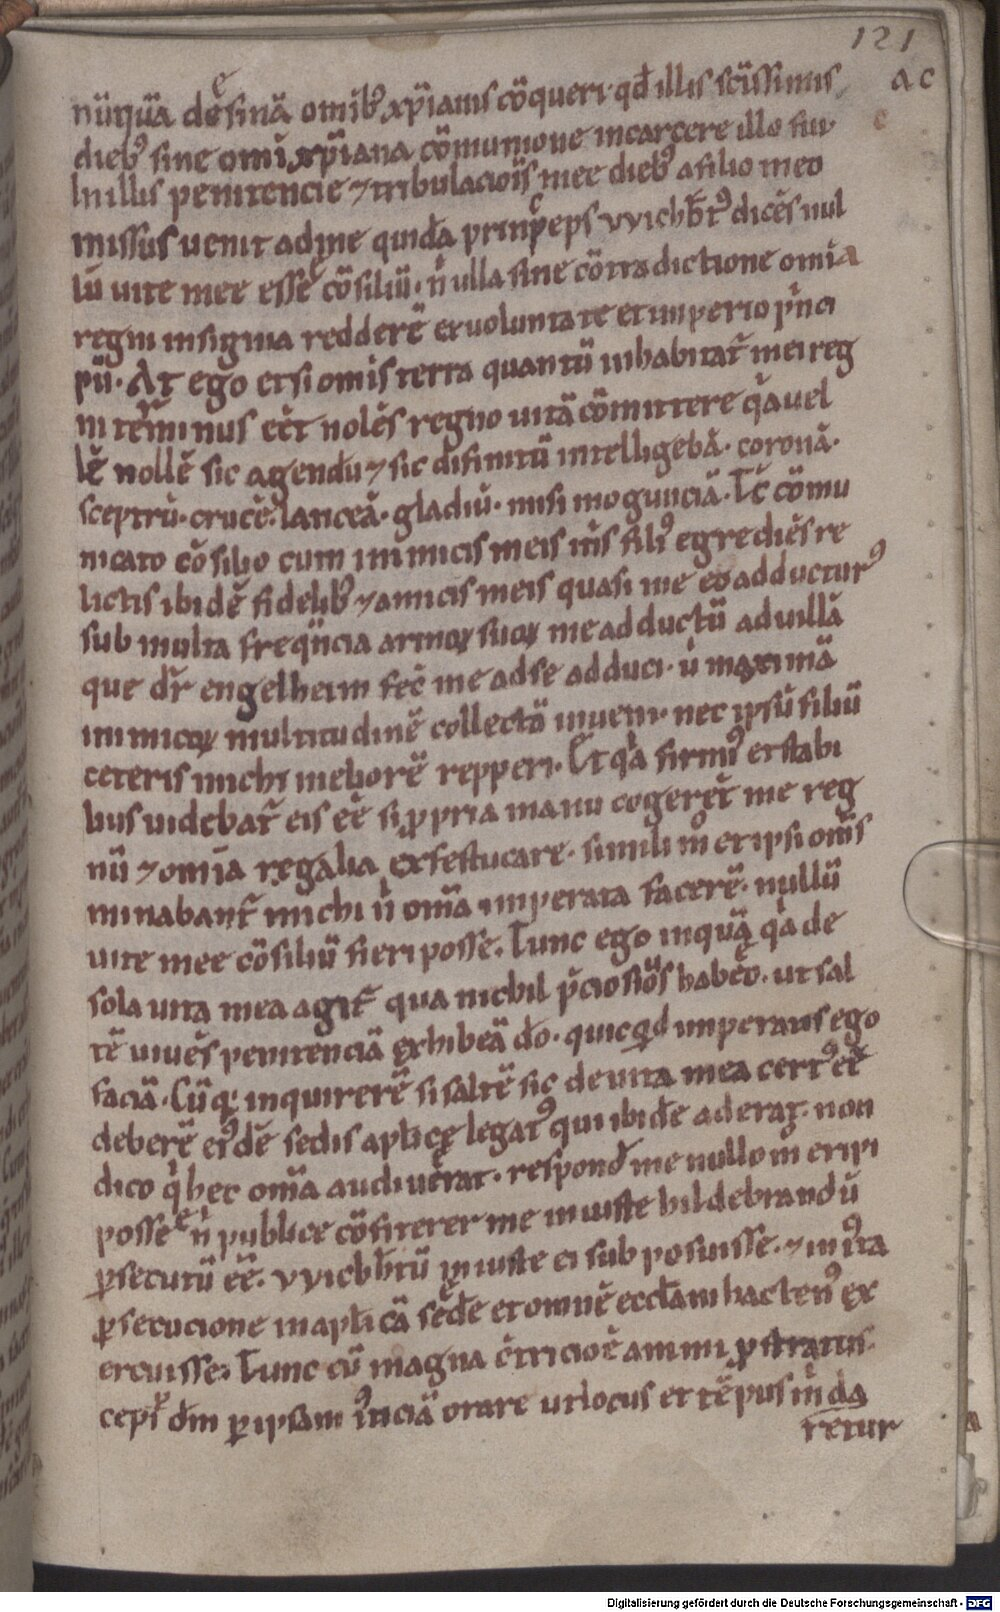 121
a c
nūqua̅ desinā omib᷒ xp̄ianis cōqueri· qđ illis sc̄issimis
dieb᷒ sine omi xp̄iana cōmunione incarcere illo fui·
Inillis penitencie ⁊ tribulaciōis mee dieb᷒ afilio meo
missus uenit adme quidā princeps vvicbb̄t᷒ dicēs nul
lū uite mee esse cōsiliū· n̄ ulla sine cōtradictione omia
regni insignia redderē ex uoluntate et imperio pͥnci
pū· At ego etsi omis terra quantū inhabitat̄ mei reg
ni terminus eēt nolēs regno uitā cōmittere qͥa uel
lē nollē sic agendū ⁊ sic difinitū intelligebā· coronā·
sceptrū· crucē· lanceā· gladiū· misi mogunciā· Tc̄ cōmu
nicato cōsilio cum inimicis meis ini̅s fili᷒ egrediēs re
lictis ibidē fidelib᷒ ⁊ amicis meis quasi me eo adductur᷒
sub multa freq̄ncia armoꝝ suoꝝ me adductū aduillā
que dr̄ engelheim fec̄ me adse adduci· ū maximā
inimicoꝝ multitudinē collectā inueni· nec ipsū filiū
ceteris michi meliorē repperi· Et qͥa firmi᷒ et stabi
lius uidebat̄ eis eē si ꝓpria manu cogerēt me reg
nū ⁊ omia regalia exfestucare· simili m̊ et ipsi om̄s
minabant̄ michi n̄ om̄a imperata facerē· nullū
uite mee cōsiliū fieri posse. Tunc ego inquā qͥa de
sola uita mea agit̄ qua nichil p̄ciosi᷒ habeo· ut sal
tē uiuēs penitenciā exhibeā dō· quicqͥd imperatis ego
faciā· Cūq; inquirerē si saltē sic de uita mea cert᷒ eē
deberē ei᷒dē sedis aplice legat᷒ qui ibidē aderat· non
dico qͥ hec om̄a audiuerat· respond̄ me nullo m̊ eripi
posse nͥ publice cōfiterer me iniuste hildebrandū
ꝑsecutū eē· vvicbb̄tū iniuste ei subposuisse· ⁊ iniͧsta
ꝑsecucione inaplicā sedē et omnē eccl̄am hacten᷒ ex
ercuisse. Tunc cū magna ctricioē animi ꝓstratus
cepi dm̄ ꝑ ipsam iͧsticiā orare ut locus et tēpus m̄ da
retur
Digitalisierung gefördert durch die Deutsche Forschungsgemeinschaft - DFG